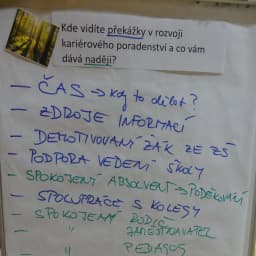 Kde vidíte překážky v rozvoji
kariérového poradenství a co vám
dává naději?
— ČAS → kdy to dělat?
— ZDROJE INFORMACÍ
— DEMOTIVOVANÍ ŽÁK ZE ZŠ
— PODPORA VEDENÍ ŠKOLY
— SPOKOJENÝ ABSOLVENT → PODĚKOVÁNÍ
— SPOLUPRÁCE S KOLEGY
— SPOKOJENÝ RODIČ
— " ZAMĚSTNAVATEL
— " PEDAGOG